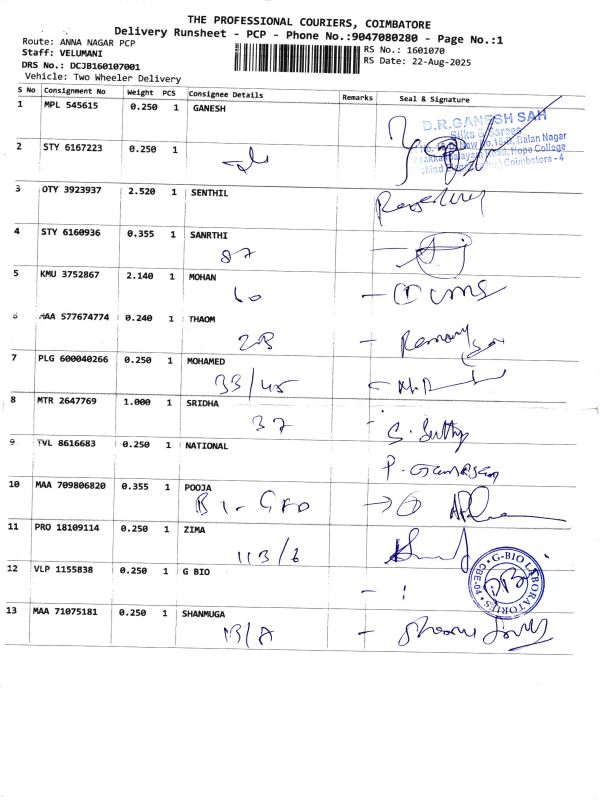 THE PROFESSIONAL COURIERS, COIMBATORE
Delivery Runsheet - PCP - Phone No.:9047080280 - Page No.:1
Route: ANNA NAGAR PCP
Staff: VELUMANI
DRS No.: DCJB160107001
Vehicle: Two Wheeler Delivery
RS No.: 1601070
RS Date: 22-Aug-2025
S No Consignment No Weight PCS Consignee Details Remarks Seal & Signature
1 MPL 545615 0.250 1 GANESH
D.R.GANESH SAH
Silks & Sarees
Balan Nagar
Road, Hope College
Coimbatore - 4
2 STY 6167223 0.250 1
3 OTY 3923937 2.520 1 SENTHIL
4 STY 6160936 0.355 1 SANRTHI
87
5 KMU 3752867 2.140 1 MOHAN
60
6 MAA 577674774 0.240 1 THAOM
20B
7 PLG 600040266 0.250 1 MOHAMED
33/45
8 MTR 2647769 1.000 1 SRIDHA
37
9 TVL 8616683 0.250 1 NATIONAL
10 MAA 709806820 0.355 1 POOJA
11 PRO 18109114 0.250 1 ZIMA
113/6
12 VLP 1155838 0.250 1 G BIO
G-BIO LABORATORIES
13 MAA 71075181 0.250 1 SHANMUGA